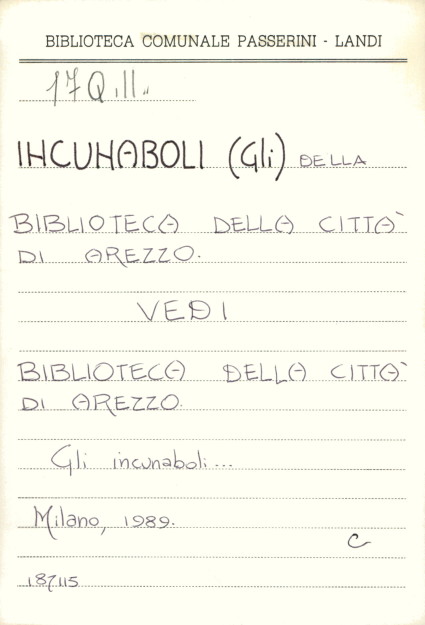 BIBLIOTECA COMUNALE PASSERINI - LANDI
17 Q.II..
INCUNABOLI (Gli) DELLA
BIBLIOTECA DELLA CITTA`
DI AREZZO.
VEDI
BIBLIOTECA DELLA CITTA`
DI AREZZO.
Gli incunaboli...
Milano, 1989.
C
187115